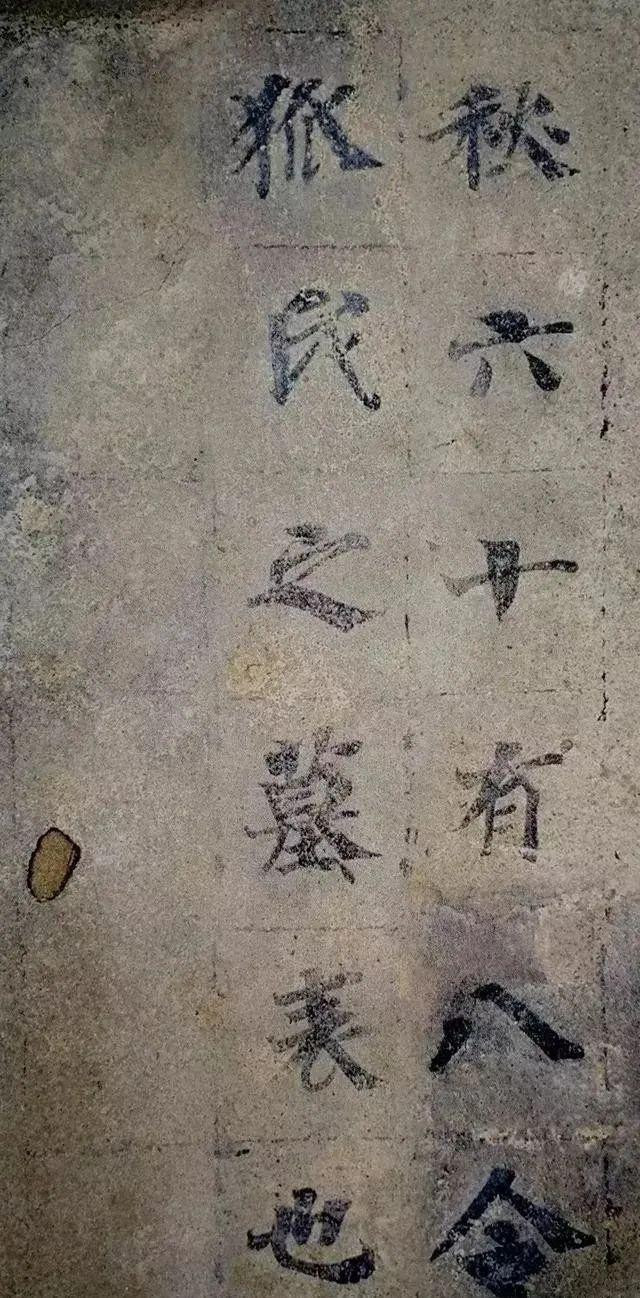 秋六十有八令
狐氏之墓表也